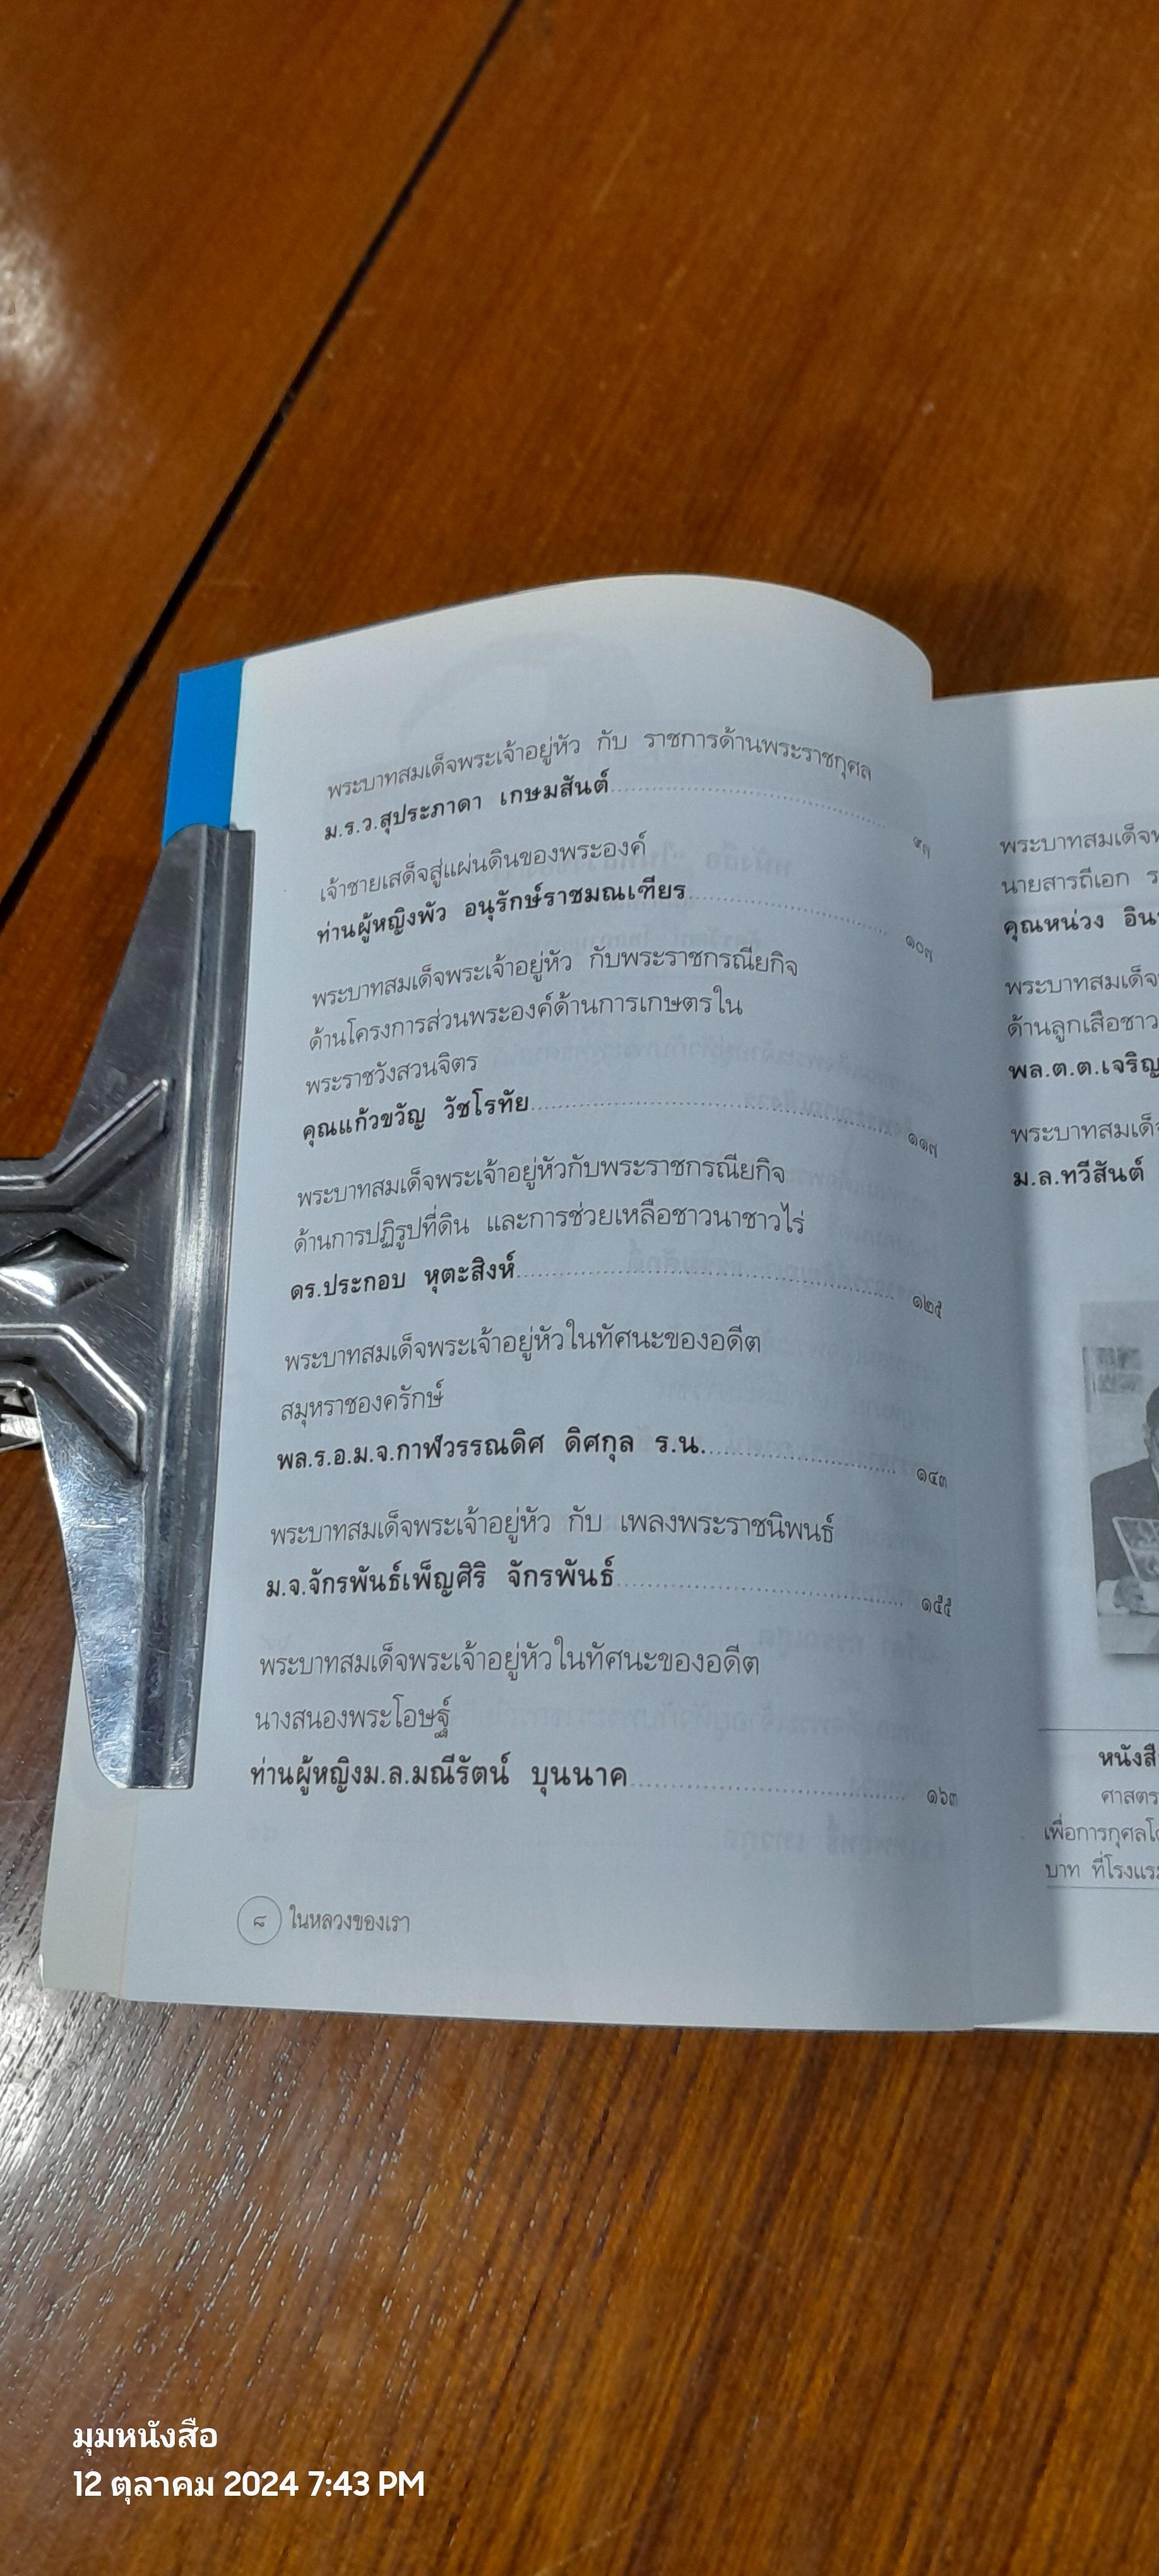 พระบาทสมเด็จพระเจ้าอยู่หัว กับ ราชการด้านพระราชกุศล
ม.ร.ว.สุประภาดา เกษมสันต์.......... ๙๗
เจ้าชายเสด็จสู่แผ่นดินของพระองค์
ท่านผู้หญิงพัว อนุรักษ์ราชมณเฑียร.......... ๑๐๗
พระบาทสมเด็จพระเจ้าอยู่หัว กับพระราชกรณียกิจ
ด้านโครงการส่วนพระองค์ด้านการเกษตรใน
พระราชวังสวนจิตร
คุณแก้วขวัญ วัชโรทัย.......... ๑๑๗
พระบาทสมเด็จพระเจ้าอยู่หัวกับพระราชกรณียกิจ
ด้านการปฏิรูปที่ดิน และการช่วยเหลือชาวนาชาวไร่
ดร.ประกอบ หุตะสิงห์.......... ๑๒๕
พระบาทสมเด็จพระเจ้าอยู่หัวในทัศนะของอดีต
สมุหราชองครักษ์
พล.ร.อ.ม.จ.กาฬวรรณดิศ ดิศกุล ร.น........... ๑๔๓
พระบาทสมเด็จพระเจ้าอยู่หัว กับ เพลงพระราชนิพนธ์
ม.จ.จักรพันธ์เพ็ญศิริ จักรพันธ์.......... ๑๕๕
พระบาทสมเด็จพระเจ้าอยู่หัวในทัศนะของอดีต
นางสนองพระโอษฐ์
ท่านผู้หญิงม.ล.มณีรัตน์ บุนนาค.......... ๑๖๓
๘ ในหลวงของเรา
พระบาทสมเด็จ
นายสารถีเอก
คุณหน่วง
พระบาทสมเด็จ
ด้านลูกเสือชาว
พล.ต.ต.เจริญ
พระบาทสมเด็จ
ม.ล.ทวีสันต์
เพื่อการกุศล
บาท
มุมหนังสือ
12 ตุลาคม 2024 7:43 PM